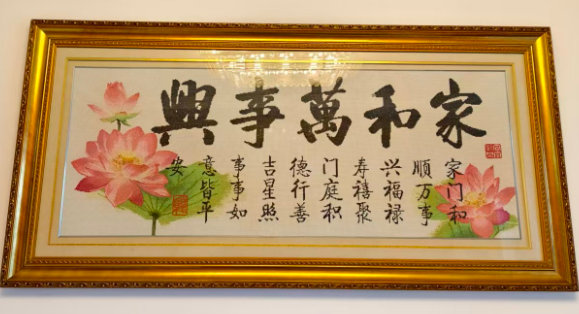 家和萬事興
家门和
順万事
兴福禄
寿禧聚
门庭积
德行善
吉星照
事事如
意皆平
安